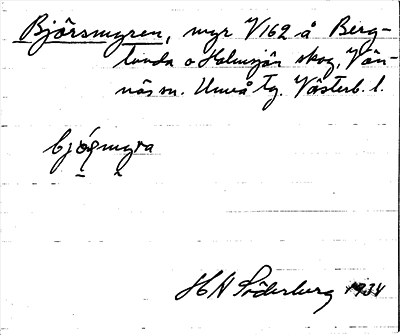 Björsmyren, myr V162 å Berg-
lunda o Holmsjön skog, Vän-
näs sn. Umeå tg. Västerb. l.
bjọ́smyra
H N Söderberg 1934